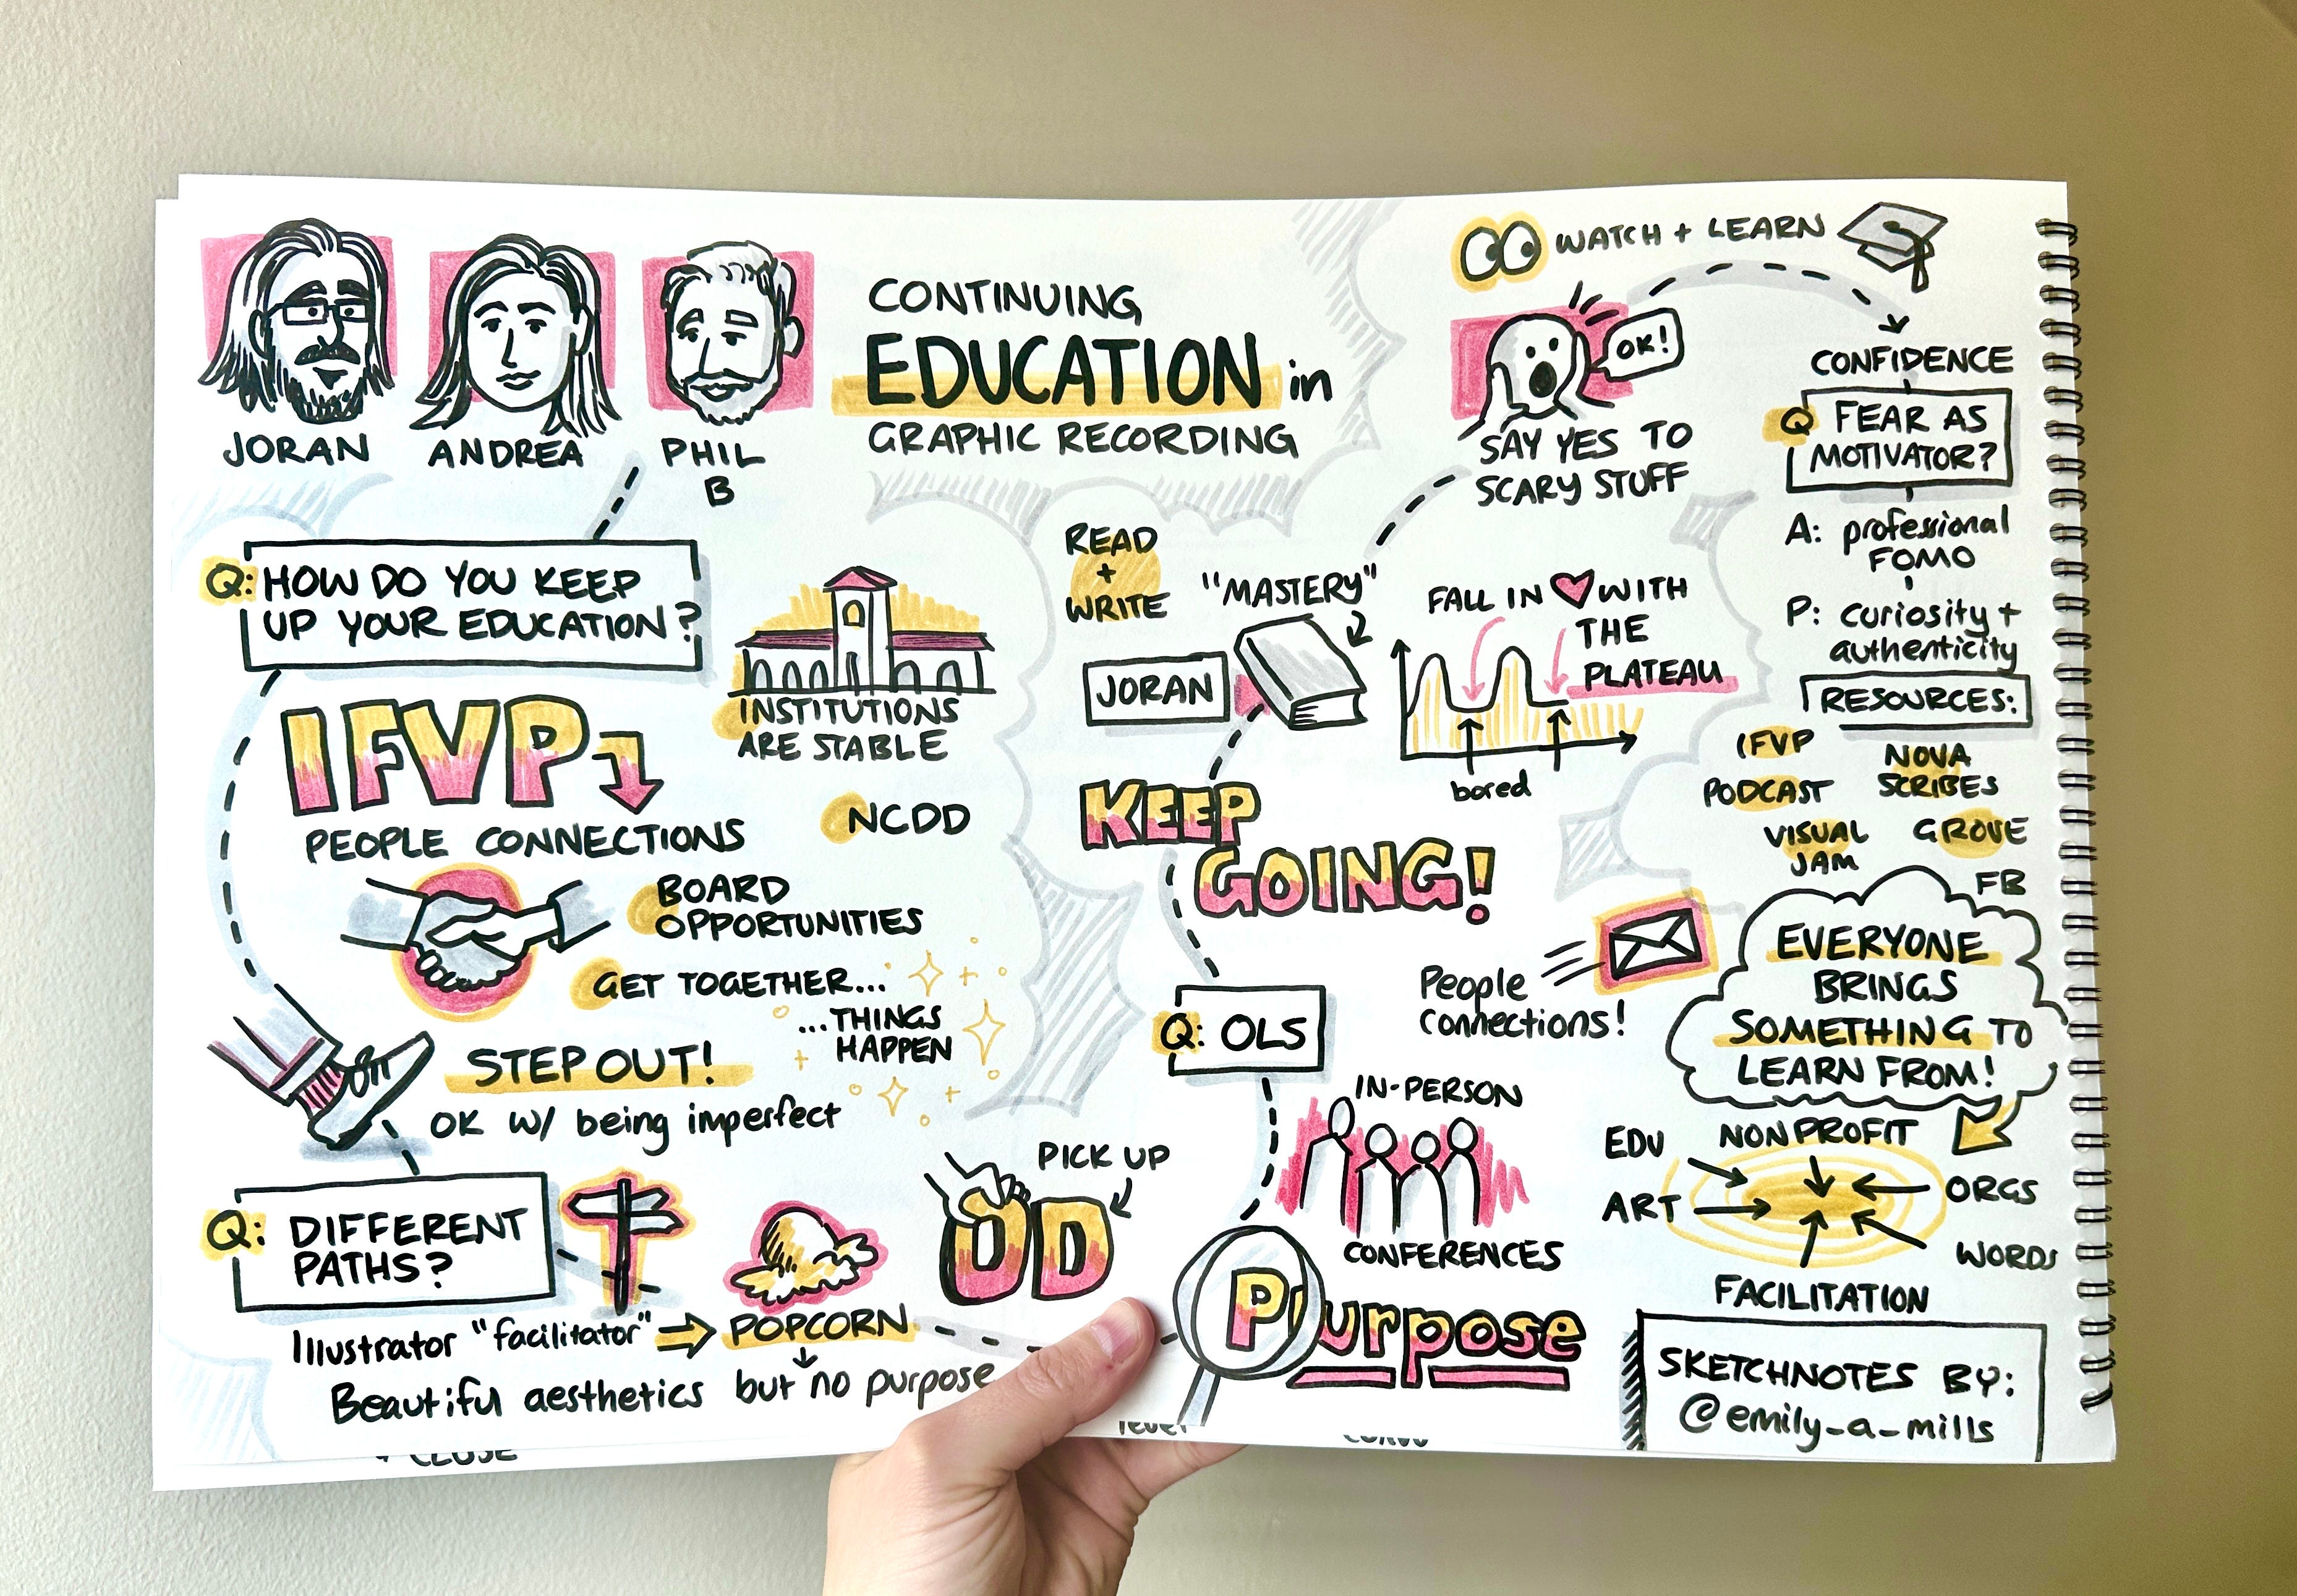 JORAN
ANDREA
PHIL
B
CONTINUING
EDUCATION in
GRAPHIC RECORDING
Q: HOW DO YOU KEEP
UP YOUR EDUCATION?
INSTITUTIONS
ARE STABLE
IFVP
PEOPLE CONNECTIONS
NCDD
BOARD
OPPORTUNITIES
GET TOGETHER...
...THINGS
HAPPEN
STEP OUT!
OK W/ being imperfect
Q: DIFFERENT
PATHS?
Illustrator "facilitator"
POPCORN
Beautiful aesthetics but no purpose
PICK UP
OD
READ
+
WRITE
JORAN
"MASTERY"
FALL IN ♥ WITH
THE
PLATEAU
bored
KEEP
GOING!
WATCH + LEARN
OK!
SAY YES TO
SCARY STUFF
CONFIDENCE
Q FEAR AS
MOTIVATOR?
A: professional
FOMO
P: curiosity +
authenticity
RESOURCES:
IFVP
PODCAST
NOVA
SCRIBES
VISUAL
JAM
GROVE
FB
Q: OLS
People
connections!
IN-PERSON
CONFERENCES
Purpose
EVERYONE
BRINGS
SOMETHING TO
LEARN FROM!
EDU
NONPROFIT
ART
ORGS
WORDS
FACILITATION
SKETCHNOTES BY:
@emily_a_mills